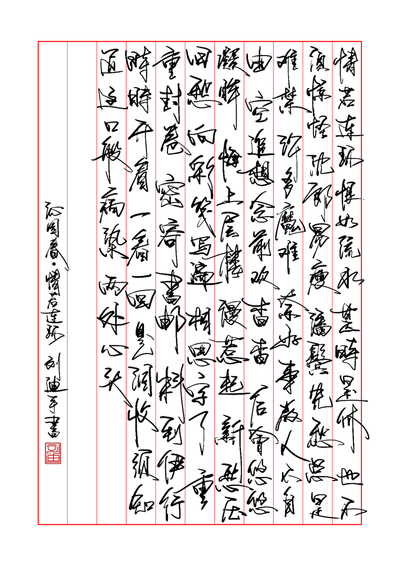 情若连环恨如流水甚时是休也不
须惊怪沈郎易瘦潘鬓先愁总是
难禁许多魔难奈好事教人不自
由空追想念前欢杳杳后会悠悠
凝眸悔上层楼谩惹起新愁压
旧愁向彩笺写遍相思字了重
重封卷密寄书邮料到伊行
时时开看一看一回和泪收须知
道这口般病染两处心头
沁园春·情若连环 刘迪 书